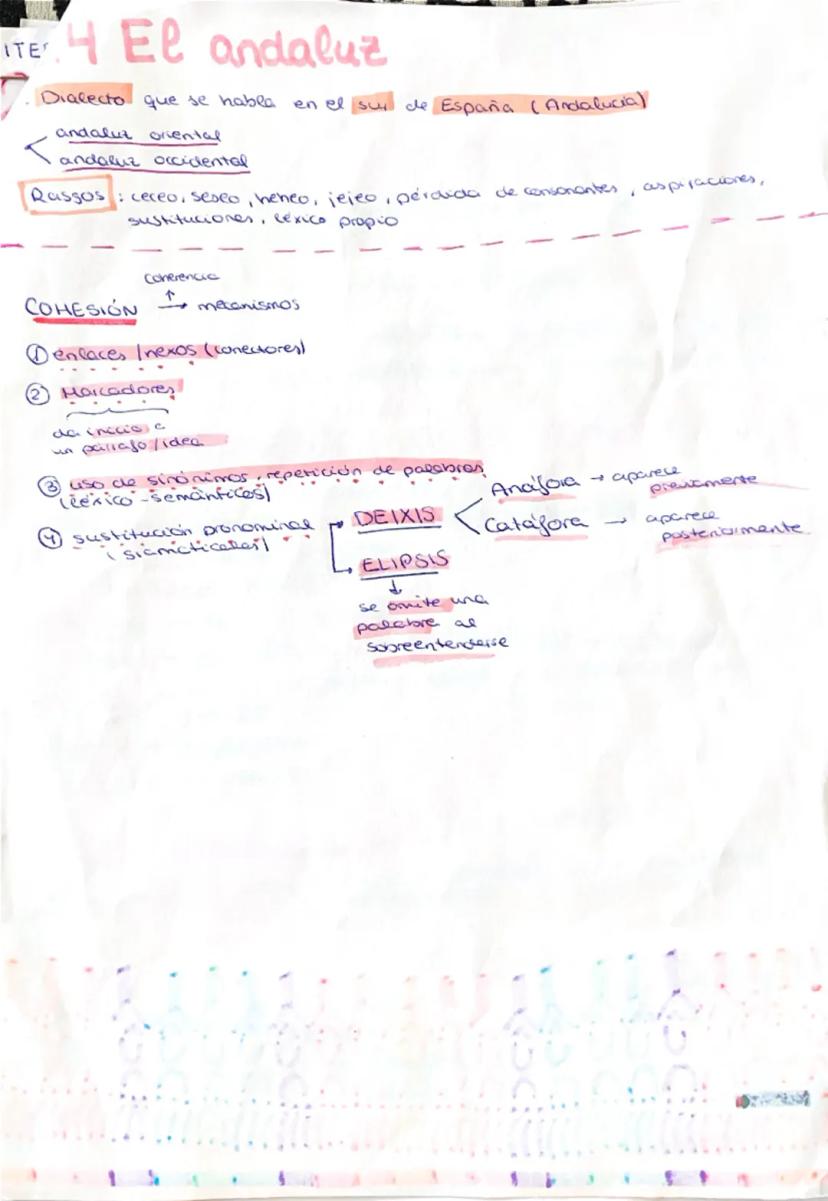 ITE
4 El andaluz
. Dialecto que se habla en el sur de España (Andalucía)
andaluz oriental
andaluz occidental
Rasgos : ceceo, seseo, heheo, jejeo, pérdida de consonantes, aspiraciones,
sustituciones, léxico propio
coherencia
COHESIÓN → mecanismos
① enlaces /nexos (conectores)
② Marcadores
da inicio a
un párrafo/idea
③ uso de sinónimos, repetición de palabras
(léxico-semánticos)
④ sustitución pronominal
DEIXIS
Anáfora → aparece
previamente
Catáfora → aparece
posteriormente
ELIPSIS
se omite una
palabra al
sobreentenderse